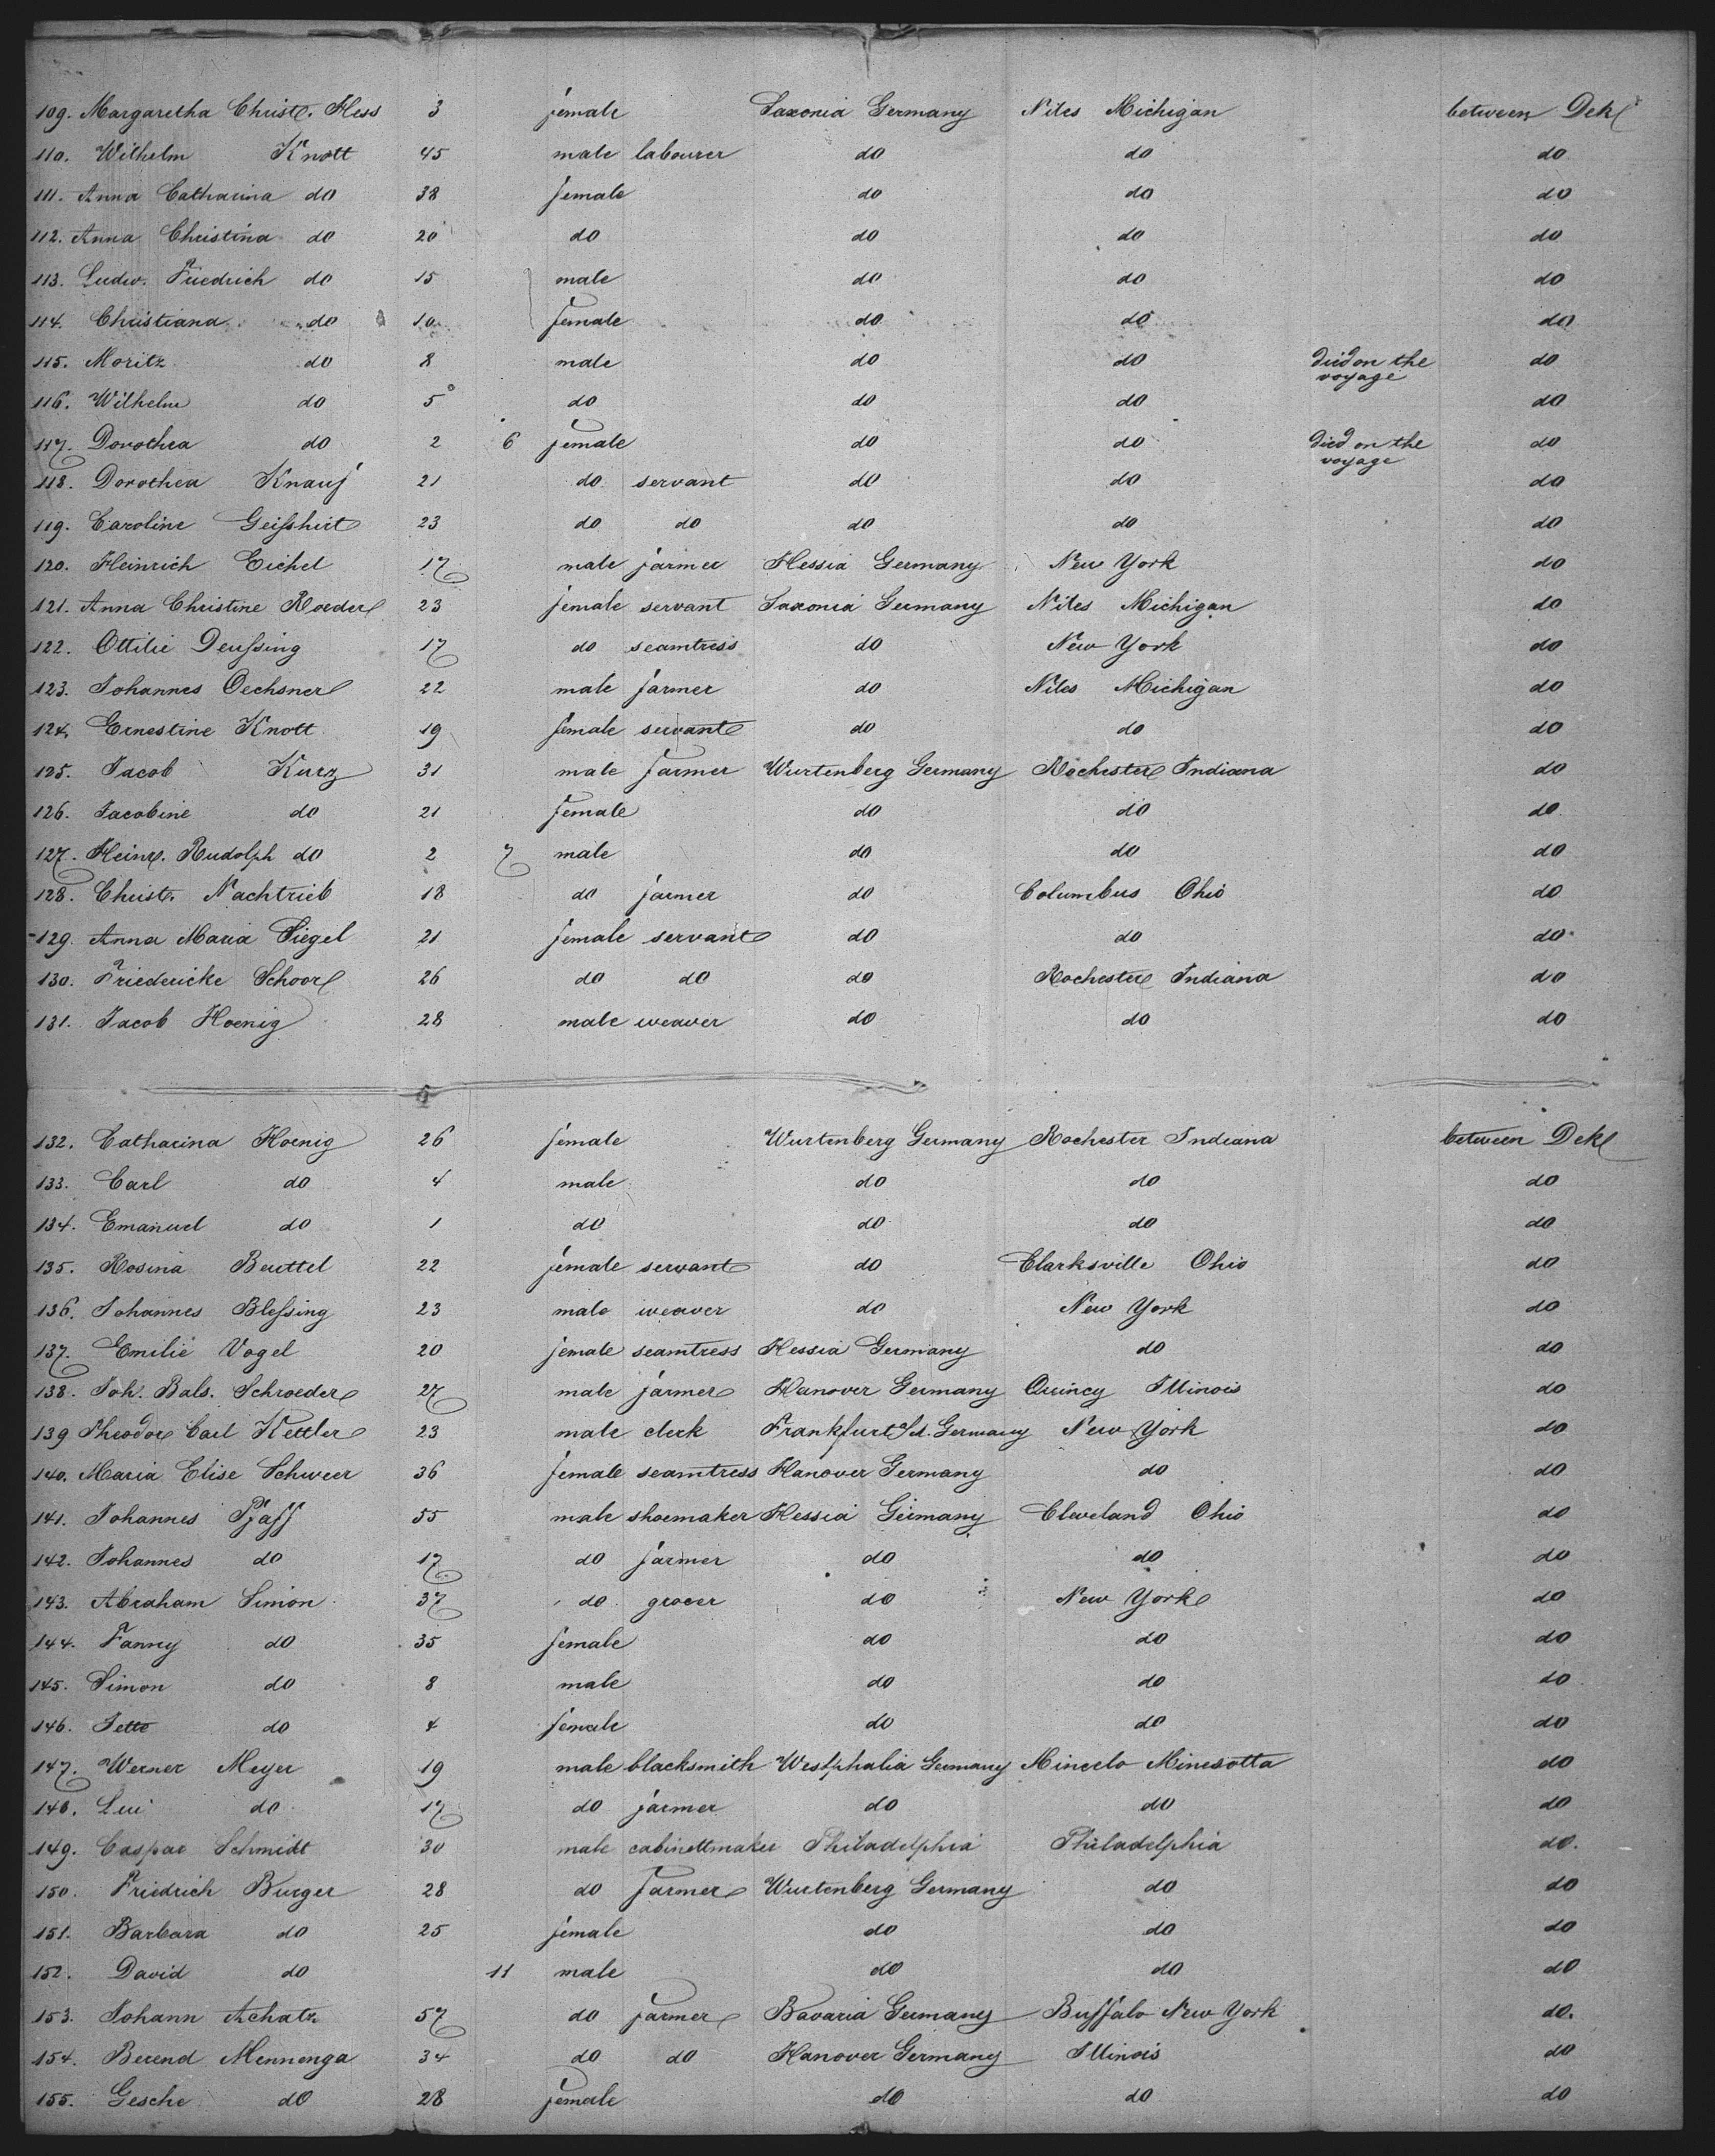 109. Margaretha Christ. Hess 3 female Saxonia Germany Niles Michigan between Dek
110. Wilhelm Knott 45 male labourer do do do
111. Anna Catharina do 38 female do do do
112. Anna Christina do 20 do do do do
113. Ludw. Friedrich do 15 male do do do
114. Christiana do 10 female do do do
115. Moritz do 8 male do do died on the voyage do
116. Wilhelm do 5 do do do do
117. Dorothea do 2 6 female do do died on the voyage do
118. Dorothea Knauf 21 do servant do do do
119. Caroline Geißhirt 23 do do do do do
120. Heinrich Eichel 17 male farmer Hessia Germany New York do
121. Anna Christine Roeder 23 female servant Saxonia Germany Niles Michigan do
122. Ottilie Deußing 17 do seamtress do New York do
123. Johannes Oechsner 22 male farmer do Niles Michigan do
124. Ernestine Knott 19 female servant do do do
125. Jacob Kurz 31 male farmer Wurtenberg Germany Rochester Indiana do
126. Jacobine do 21 female do do do
127. Heinr. Rudolph do 2 7 male do do do
128. Christ. Nachtrieb 18 do farmer do Columbus Ohio do
129. Anna Maria Siegel 21 female servant do do do
130. Friedericke Schoor 26 do do do Rochester Indiana do
131. Jacob Hoenig 28 male weaver do do do
132. Catharina Hoenig 26 female Wurtenberg Germany Rochester Indiana between Dek
133. Carl do 4 male do do do
134. Emanuel do 1 do do do do
135. Rosina Beuttel 22 female servant do Clarksville Ohio do
136. Johannes Bleßing 23 male weaver do New York do
137. Emilie Vogel 20 female seamtress Hessia Germany do do
138. Joh. Bals. Schroeder 27 male farmer Hanover Germany Quincy Illinois do
139 Theodor Carl Kettler 23 male clerk Frankfurt Germany New York do
140. Maria Elise Schweer 36 female seamtress Hanover Germany do do
141. Johannes Pfaff 55 male shoemaker Hessia Germany Cleveland Ohio do
142. Johannes do 17 do farmer do do do
143. Abraham Simon 37 do grocer do New York do
144. Fanny do 35 female do do do
145. Simon do 8 male do do do
146. Jette do 4 female do do do
147. Werner Meyer 19 male blacksmith Westphalia Germany Minesotta do
148. Lui do 17 do farmer do do do
149. Caspar Schmidt 30 male cabinettmaker Philadelphia Philadelphia do.
150. Friedrich Burger 28 do farmer Wurtenberg Germany do do
151. Barbara do 25 female do do do
152. David do 11 male do do do
153. Johann Achatz 57 do farmer Bavaria Germany Buffalo New York do.
154. Berend Mennenga 34 do do Hanover Germany Illinois do
155. Gesche do 28 female do do do